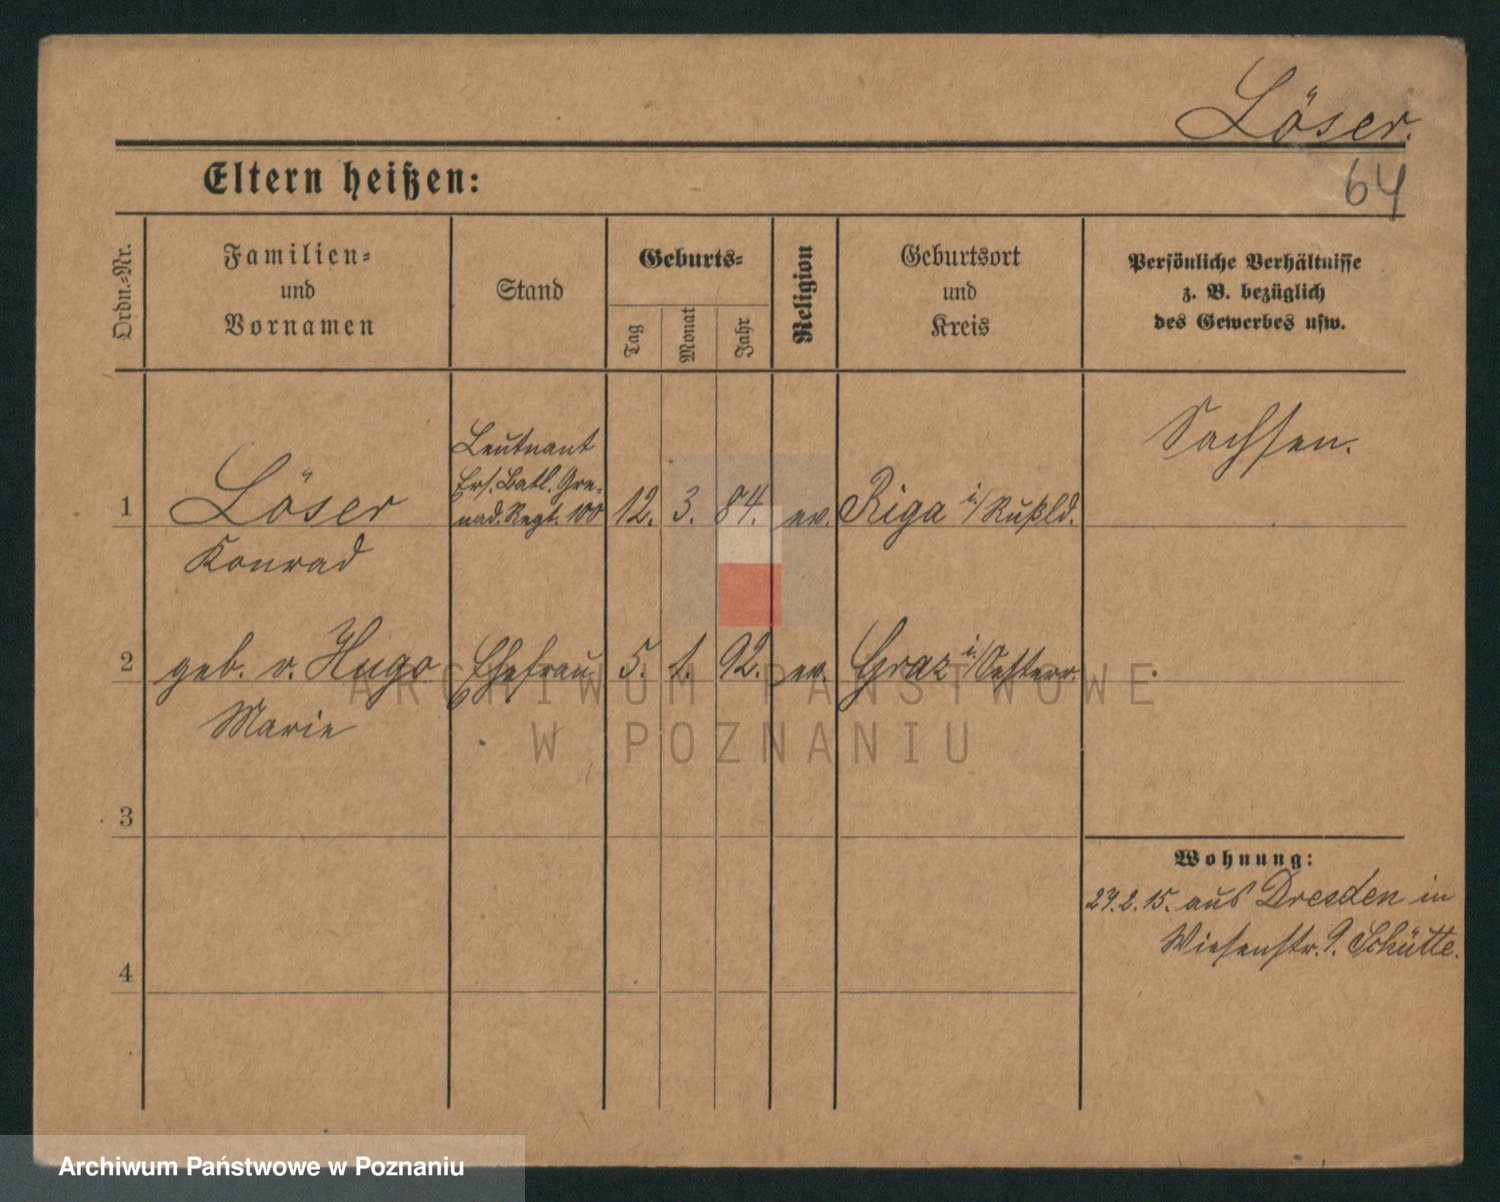 Löser.
Eltern heißen:
64
Ordn.-Nr.
Familien-
und
Vornamen
Stand
Geburts-
Tag
Monat
Jahr
Religion
Geburtsort
und
Kreis
Persönliche Verhältnisse
z. B. bezüglich
des Gewerbes usw.
Sachsen.
Leutnant
Ers. Batl. Gre-
1 Löser nad. Regt. 100 12. 3. 84. ev. Riga i/Rußld.
Konrad
2 geb. v. Hugo Ehefrau 5. 1. 92. ev. Graz i/Oesterr.
Marie
ARCHIWUM PAŃSTWOWE
W POZNANIU
3
Wohnung:
27.2.15. aus Dresden in
Wiesenstr. 9. Schütte.
4
Archiwum Państwowe w Poznaniu